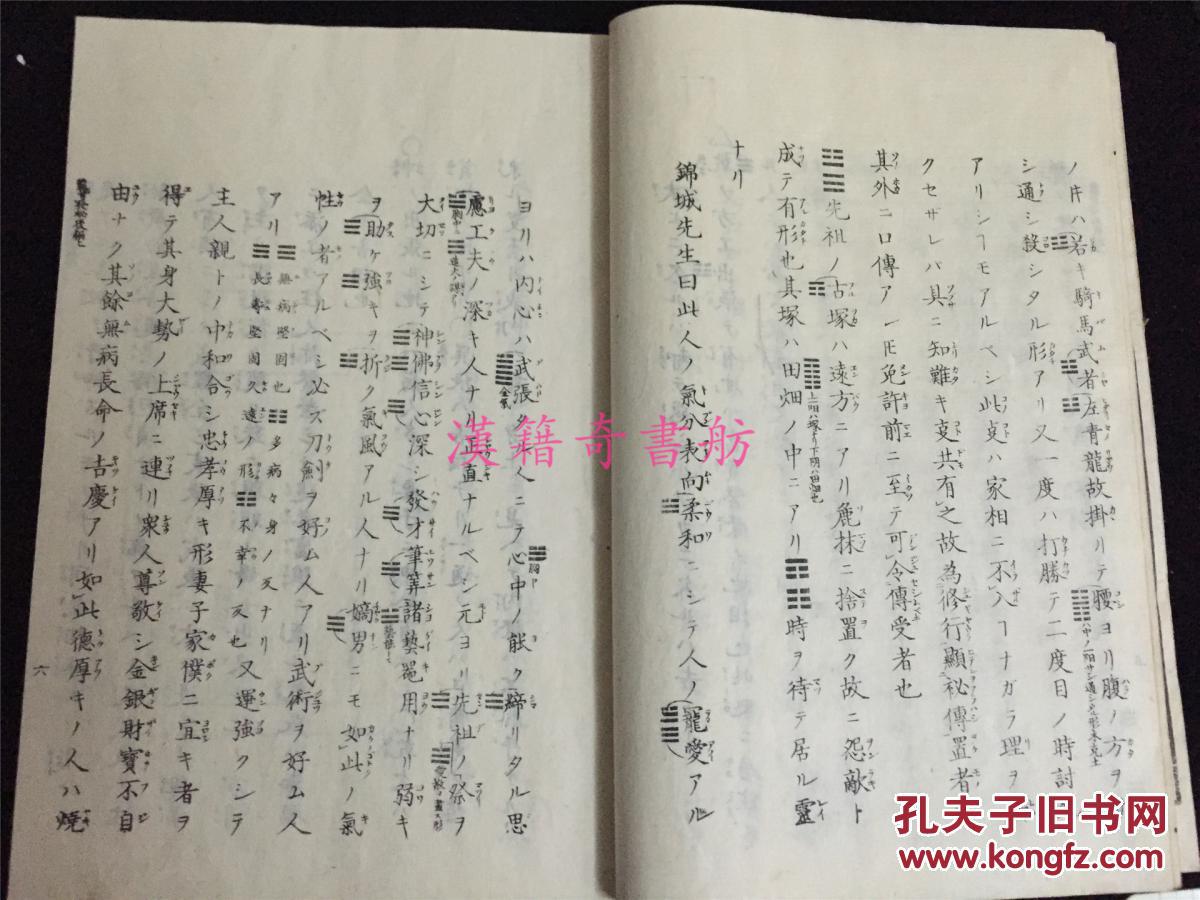 ノ片ハ若キ騎馬武者左青龍故掛リテ腰ヨリ腹ノ方ヲ
シ通シ殺シタル形アリ又一度ハ打勝テ二度目ノ時討
アリシヿモアルベシ此㕝ハ家相ニ不入ヿナガラ理ヲ
クセザレバ具ニ知難キ㕝共有之故為修行顯祕傳置者
其外ニ口傳アレ𪜈免許前ニ至テ可令傳受者也
☷☷先祖ノ古塚ハ遠方ニアリ麁抹ニ捨置ク故ニ怨敵ト
成テ有形也其塚ハ田畑ノ中ニアリ 時ヲ待テ居ル靈
ナリ
錦城先生曰此人ノ氣分表向柔和ニシテ人ノ寵愛アル
ヨリハ内心ハ武張タル人ニテ心中ノ能ク締リタル思
慮工夫ノ深キ人ナリ正直ナルベシ元ヨリ先祖ノ祭ヲ
大切ニシテ神佛信心深シ發才筆筭諸藝器用ナリ弱キ
ヲ助ケ強キヲ折ク氣風アル人ナリ嫡男ニモ如此ノ氣
性ノ者アルベシ必ズ刀劍ヲ好ム人アリ武術ヲ好ム人
アリ 無病堅固也 多病々身ノ爻ナリ
長壽堅固久遠ノ形 不幸ノ爻也 又運強クシテ
主人親トノ中和合シ忠孝厚キ形妻子家僕ニ宜キ者ヲ
得テ其身大勢ノ上席ニ連リ衆人尊敬シ金銀財寶不自
由ナク其餘無病長命ノ吉慶アリ如此德厚キノ人ハ燒
六
漢籍奇書舫
孔夫子旧书网
www.kongfz.com